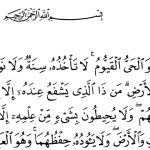 بِسْمِ اللَّهِ الرَّحْمَٰنِ الرَّحِيمِ
وَ الْحَيُّ الْقَيُّومُ ۚ لَا تَأْخُذُهُ سِنَةٌ وَلَا نَو
الْأَرْضِ ۗ مَن ذَا الَّذِي يَشْفَعُ عِندَهُ إِلَّا
هُمْ ۖ وَلَا يُحِيطُونَ بِشَيْءٍ مِّنْ عِلْمِهِ إِلَّا
تِ وَالْأَرْضَ ۖ وَلَا يَئُودُهُ حِفْظُهُمَا ۚ وَهُوَ الْعَ